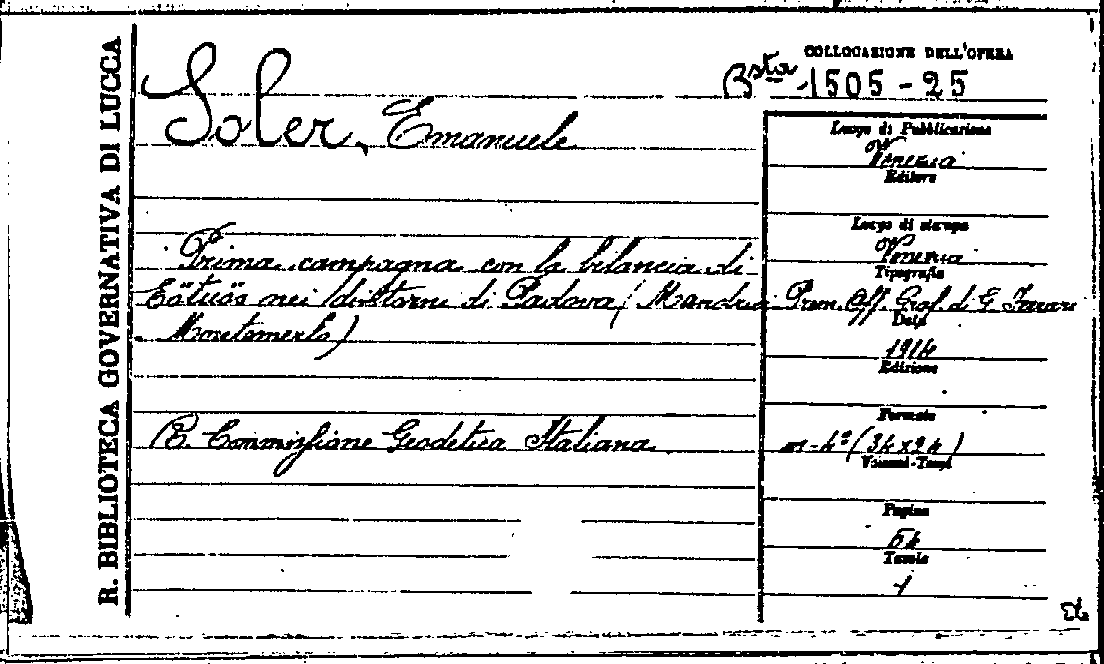 R. BIBLIOTECA GOVERNATIVA DI LUCCA
COLLOCAZIONE DELL'OPERA
Bsta 1505-25
Soler, Emanuele
Prima campagna con la bilancia di
Eötvös nei dintorni di Padova (Mandria
Montemerlo)
R. Commissione Geodetica Italiana
Luogo di Pubblicazione
Venezia
Editore
Luogo di stampa
Venezia
Tipografia
Prem. Off. Graf. di G. Ferrari
Data
1914
Edizione
Formato
in-4° (34x24)
Volumi-Tomi
Pagine
54
Tavole
1